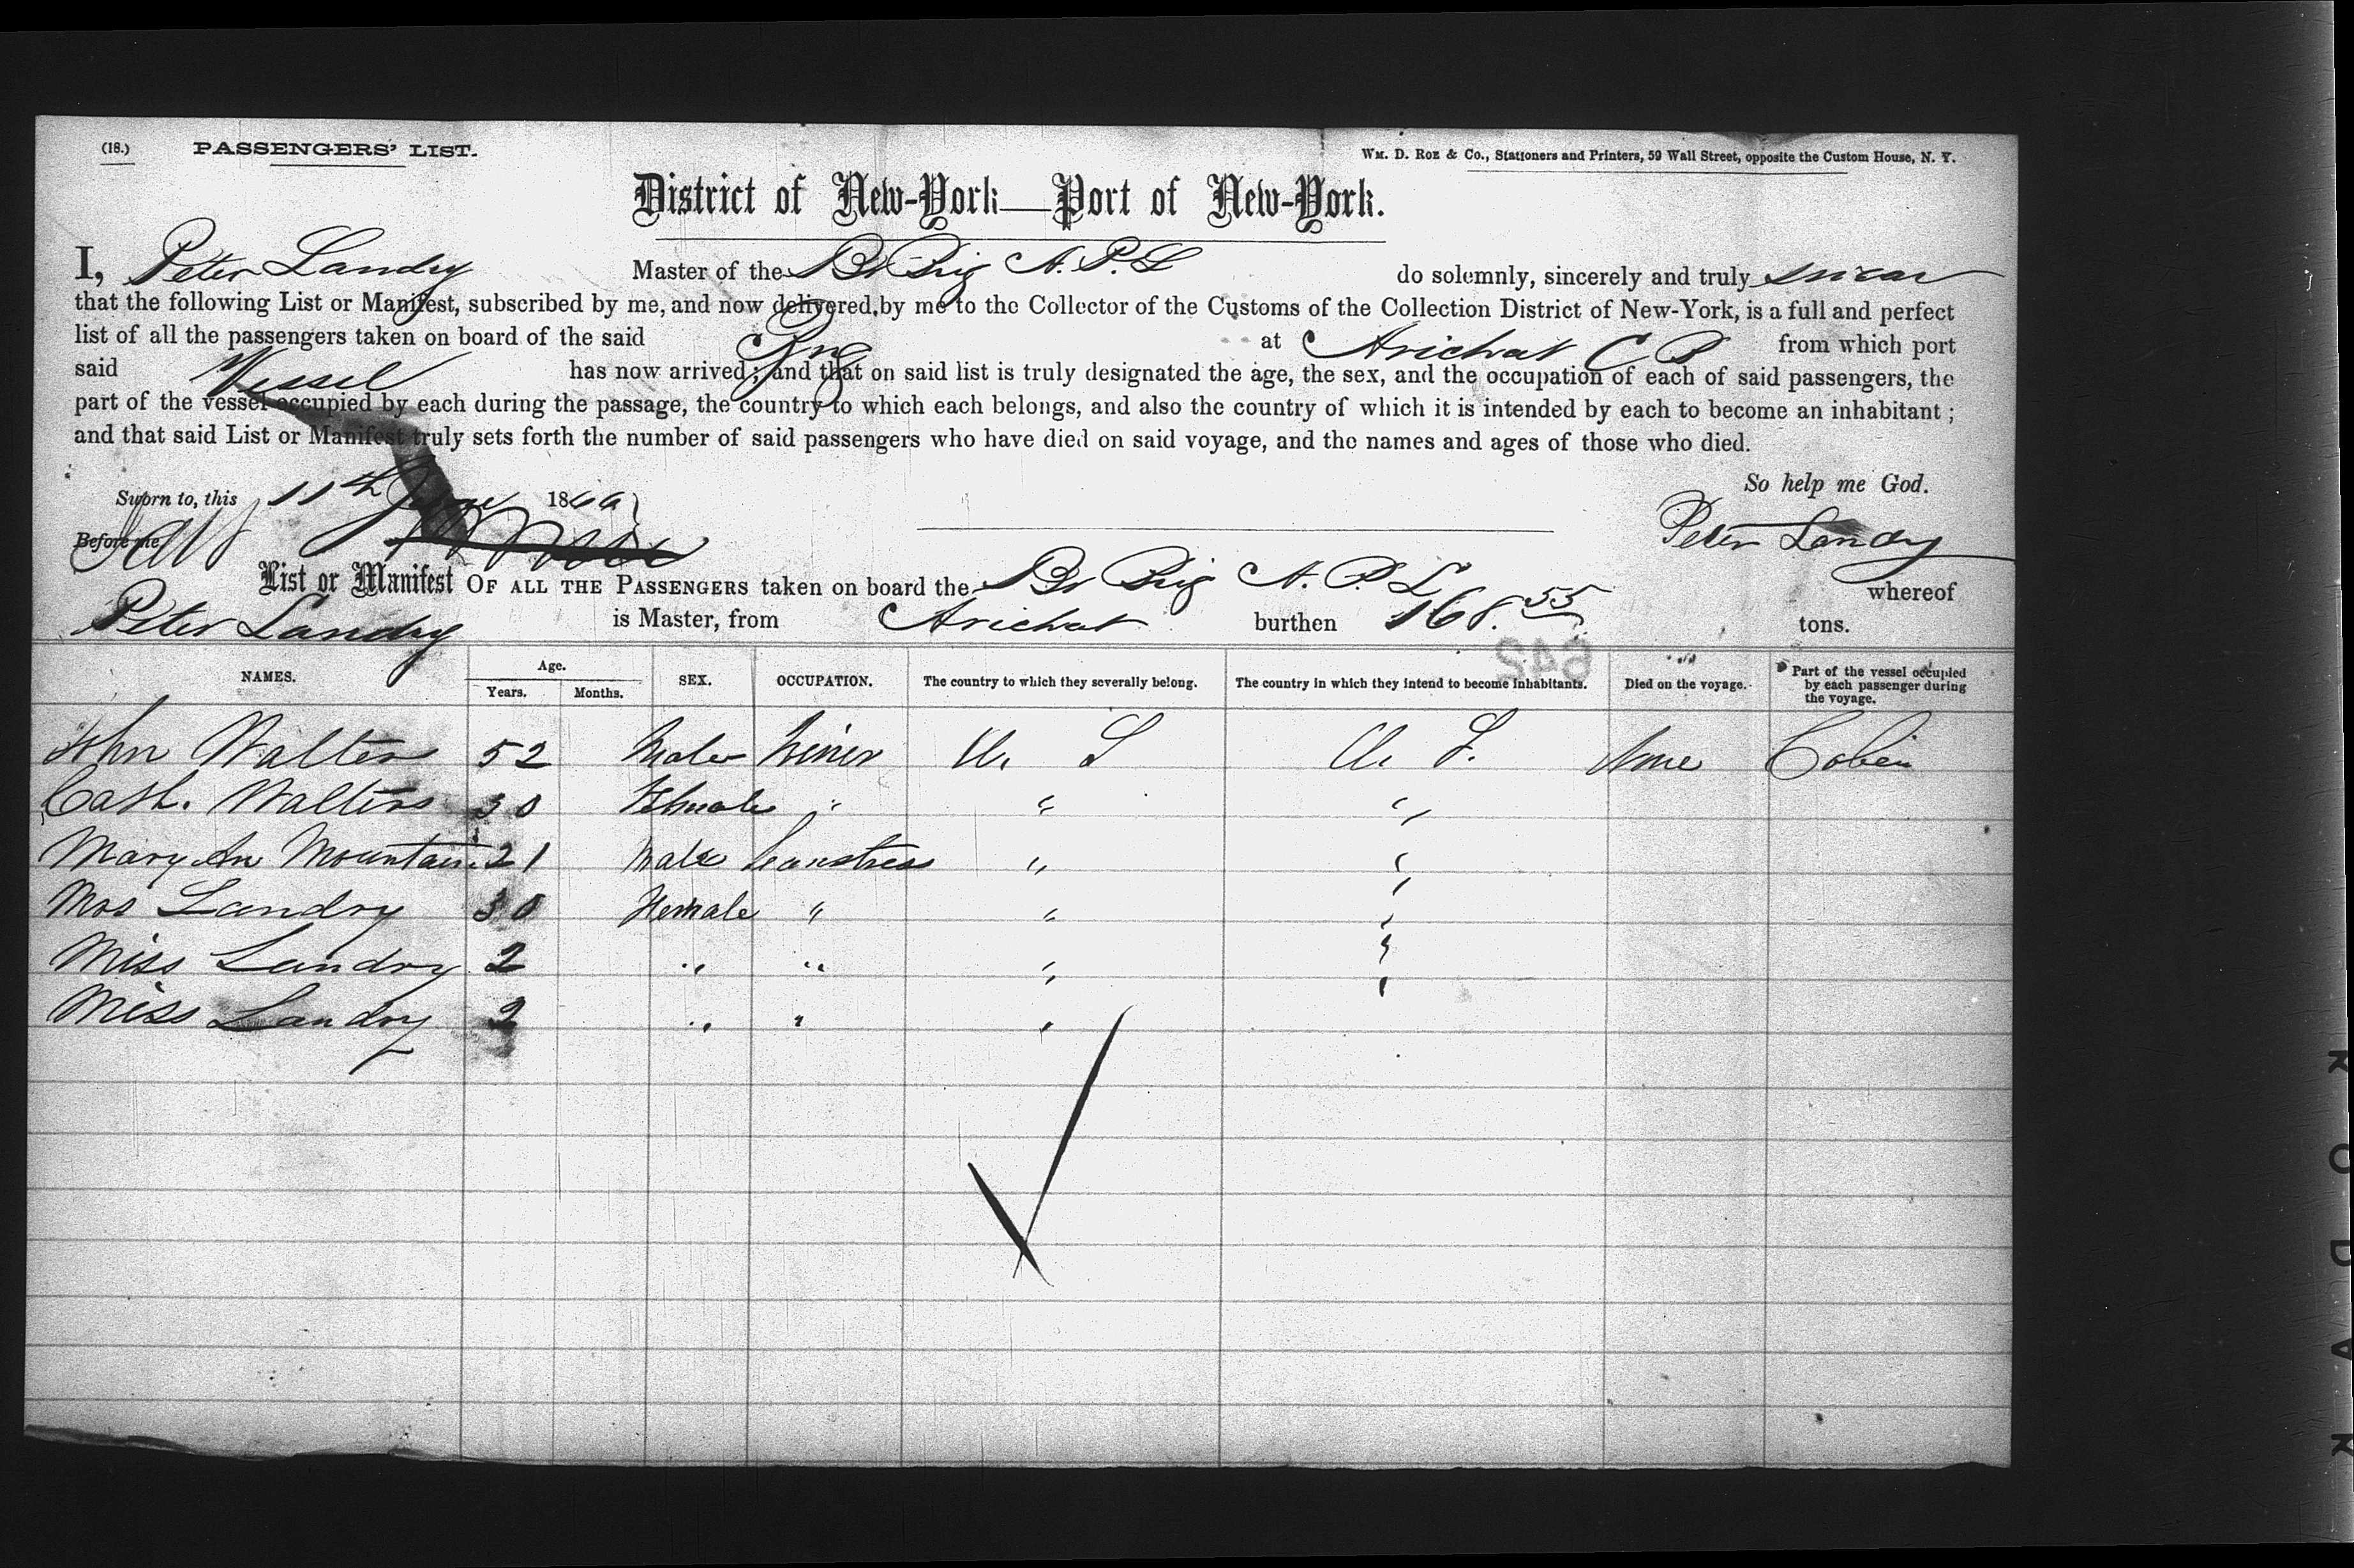 (18.) PASSENGERS' LIST. Wm. D. Roe & Co., Stationers and Printers, 59 Wall Street, opposite the Custom House, N. Y.
District of New-York—Port of New-York.
I, Peter Landry Master of the Br Brig A. P. L do solemnly, sincerely and truly swear
that the following List or Manifest, subscribed by me, and now delivered by me to the Collector of the Customs of the Collection District of New-York, is a full and perfect
list of all the passengers taken on board of the said Brig at Arichat C B from which port
said Vessel has now arrived; and that on said list is truly designated the age, the sex, and the occupation of each of said passengers, the
part of the vessel occupied by each during the passage, the country to which each belongs, and also the country of which it is intended by each to become an inhabitant;
and that said List or Manifest truly sets forth the number of said passengers who have died on said voyage, and the names and ages of those who died.
So help me God.
Sworn to, this 11th June 186
Before me Peter Landry
List or Manifest OF ALL THE PASSENGERS taken on board the Br Brig A. P. L whereof
Peter Landry is Master, from Arichat burthen 168.55 tons.
642
NAMES. Age. Years. Months. SEX. OCCUPATION. The country to which they severally belong. The country in which they intend to become inhabitants. Died on the voyage. Part of the vessel occupied by each passenger during the voyage.
John Walters 52 Male Miner U. S U. S. None Cabin
Cath. Walters 30 Female " " "
Mary An Mountain 21 Male Seamstress " "
Mrs Landry 30 Female " " "
Miss Landry 2 " " " "
Miss Landry 2 " " "
KODAK